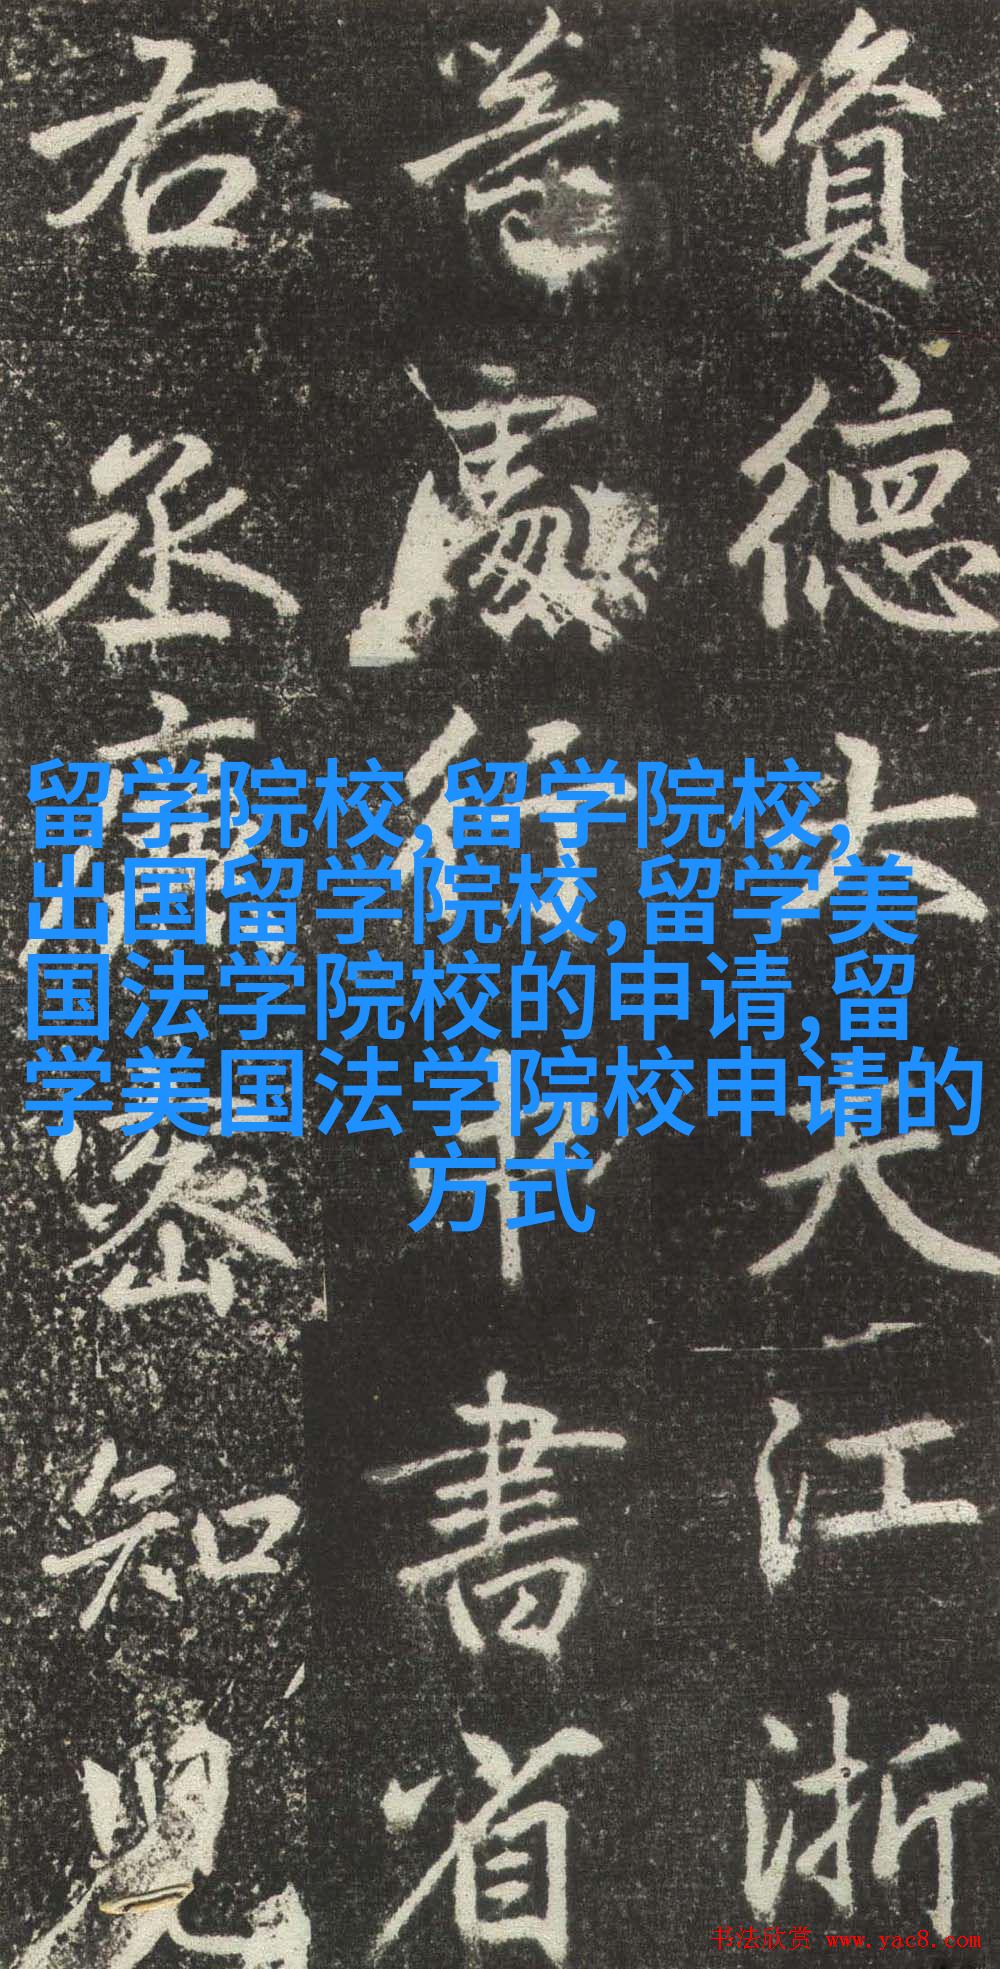 資德大夫江浙
等處行中書省
右丞廉密知兒
留学院校,留学院校,
出国留学院校,留学美
国法学院校的申请,留
学美国法学院校申请的
方式
书法欣赏 www.yac8.com